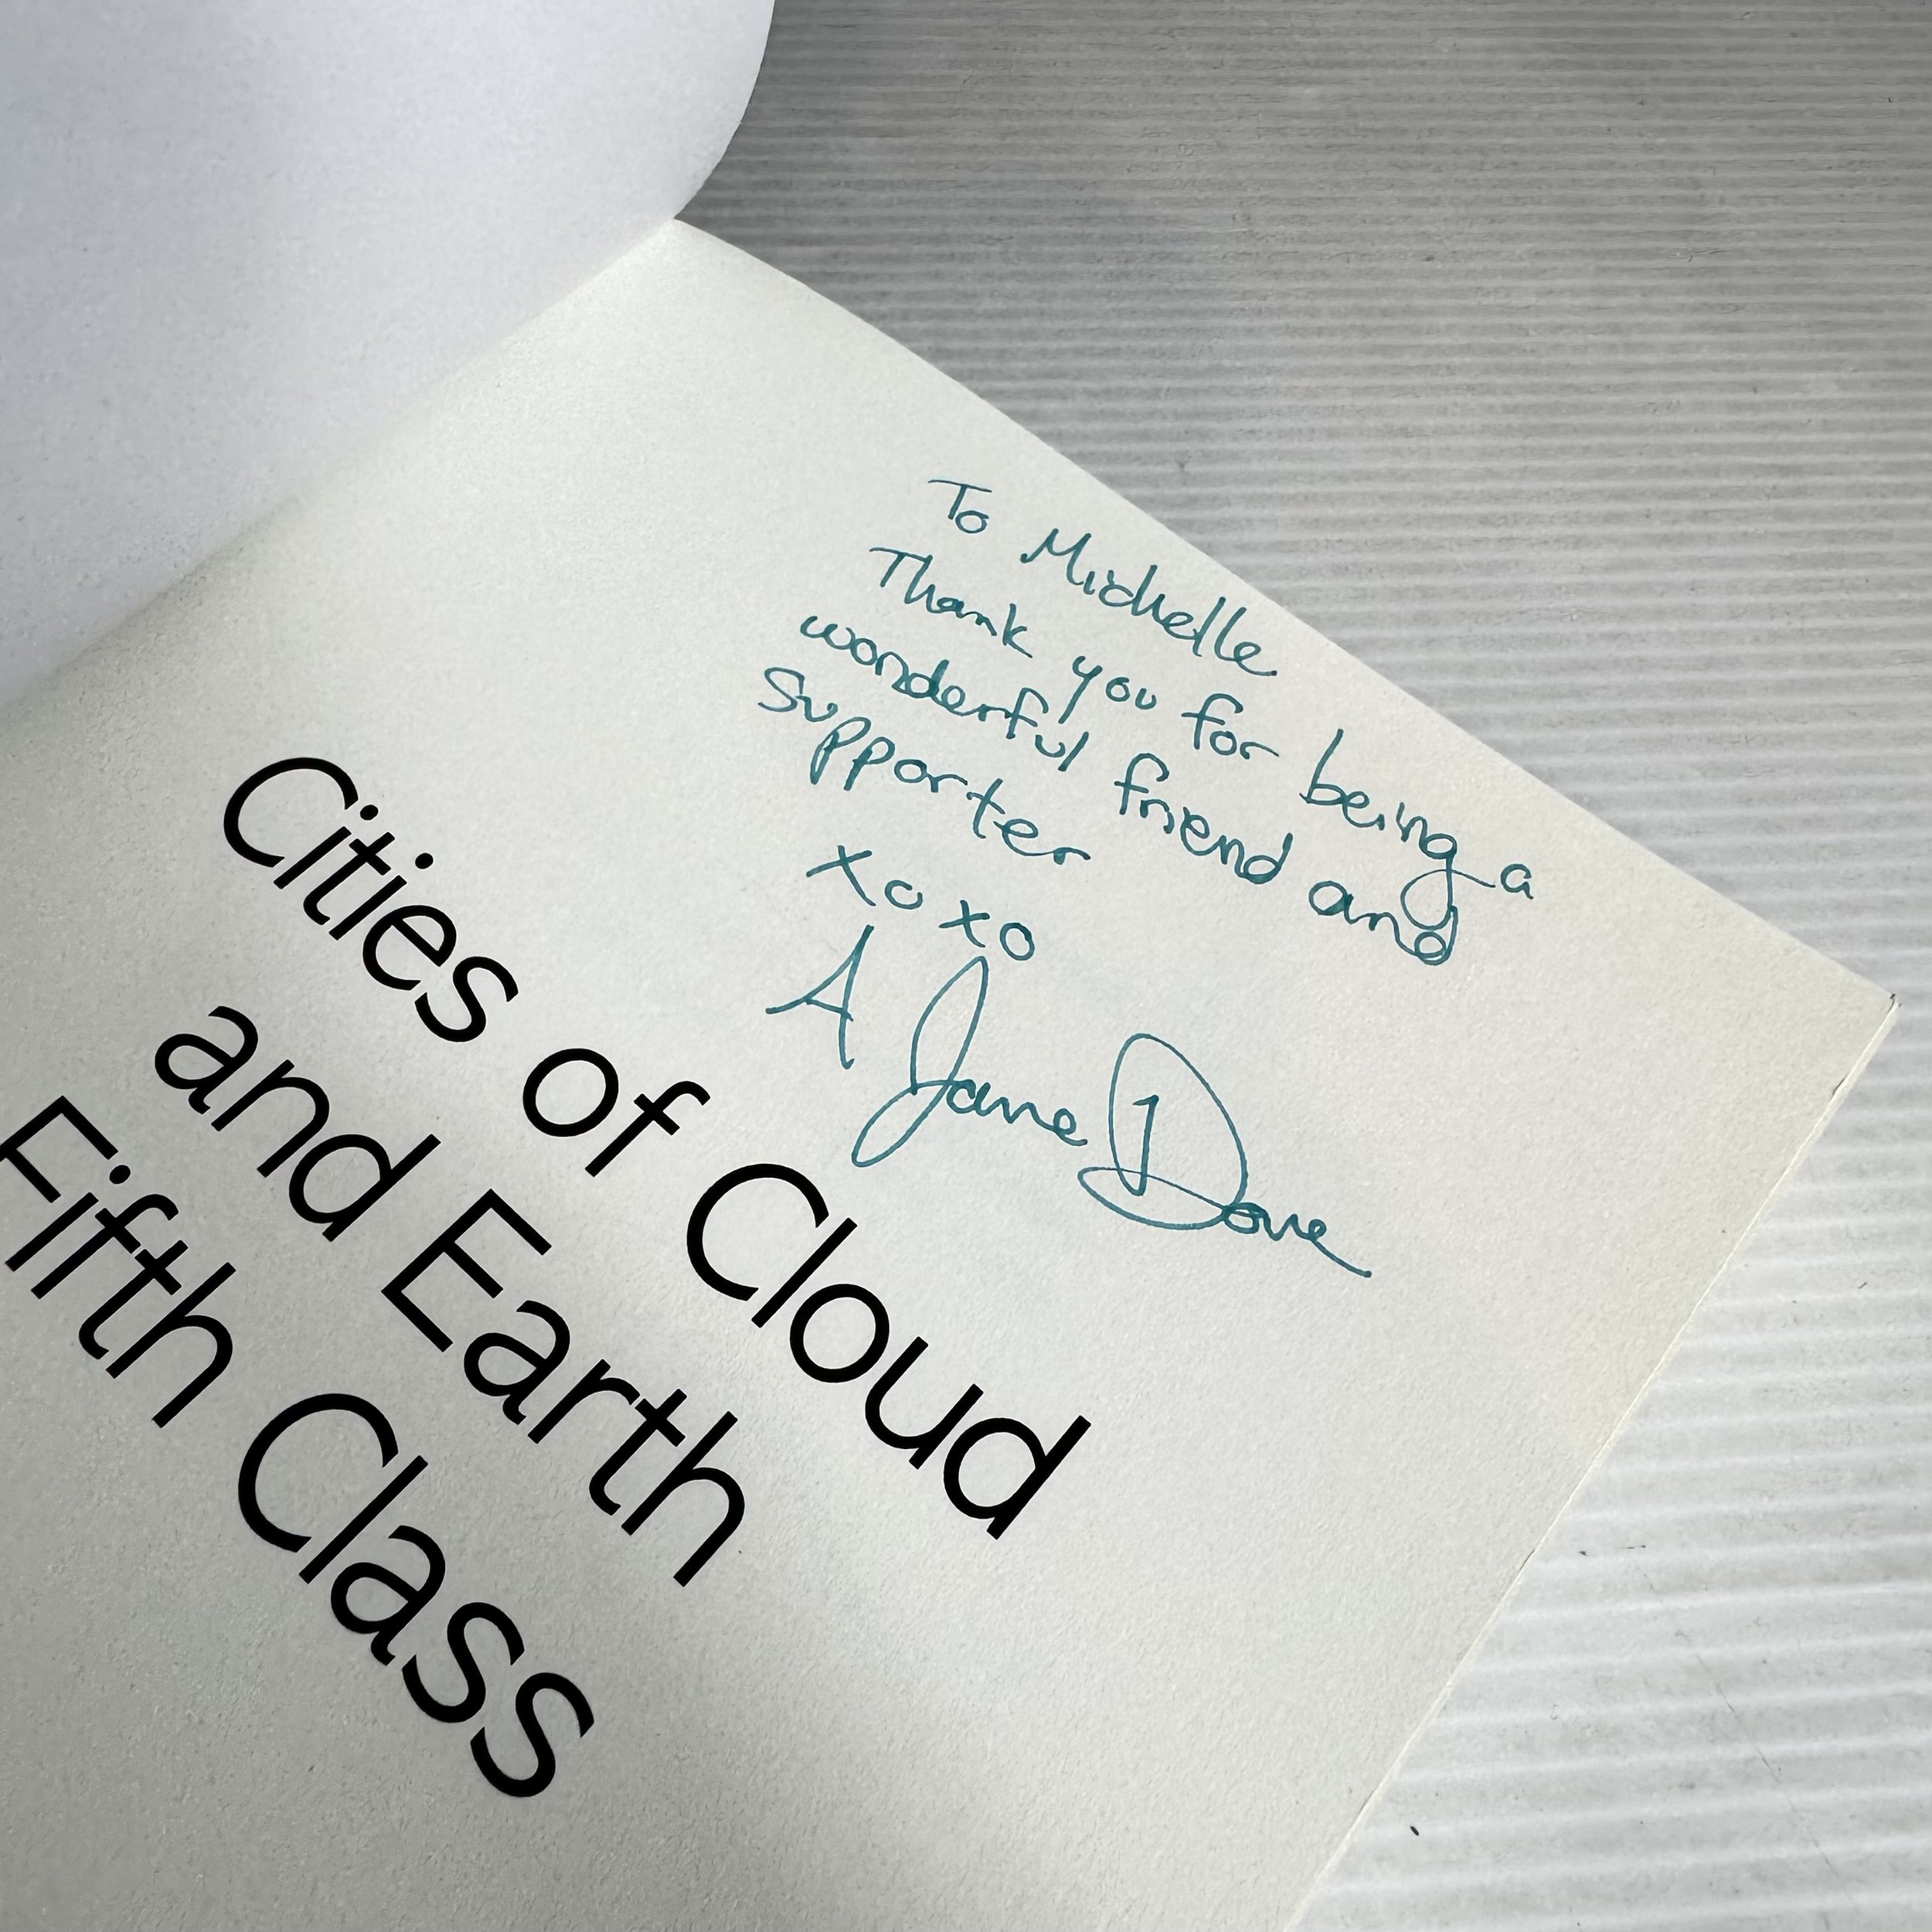 To Michelle
Thank you for being a
wonderful friend and
Supporter
xoxo
A Jane Dove
Cities of Cloud
and Earth
Fifth Class